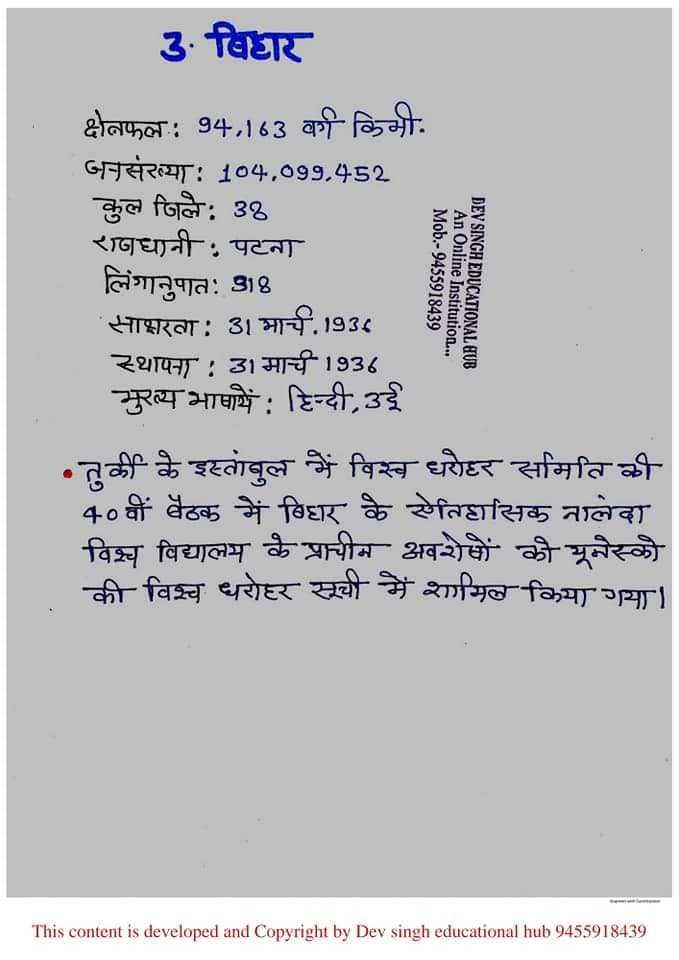 3. बिहार
क्षेत्रफल: 94,163 वर्ग किमी.
जनसंख्या: 104,099,452
कुल जिले: 38
राजधानी: पटना
लिंगानुपात: 918
साक्षरता: 31 मार्च, 1936
स्थापना: 31 मार्च 1936
मुख्य भाषायें: हिन्दी, उर्दू
DEV SINGH EDUCATIONAL HUB
An Online Institution...
Mob.- 9455918439
• तुर्की के इस्तांबुल में विश्व धरोहर समिति की
40वीं बैठक में बिहार के ऐतिहासिक नालंदा
विश्व विद्यालय के प्राचीन अवशेषों को यूनेस्को
की विश्व धरोहर सूची में शामिल किया गया।
Scanned with CamScanner
This content is developed and Copyright by Dev singh educational hub 9455918439